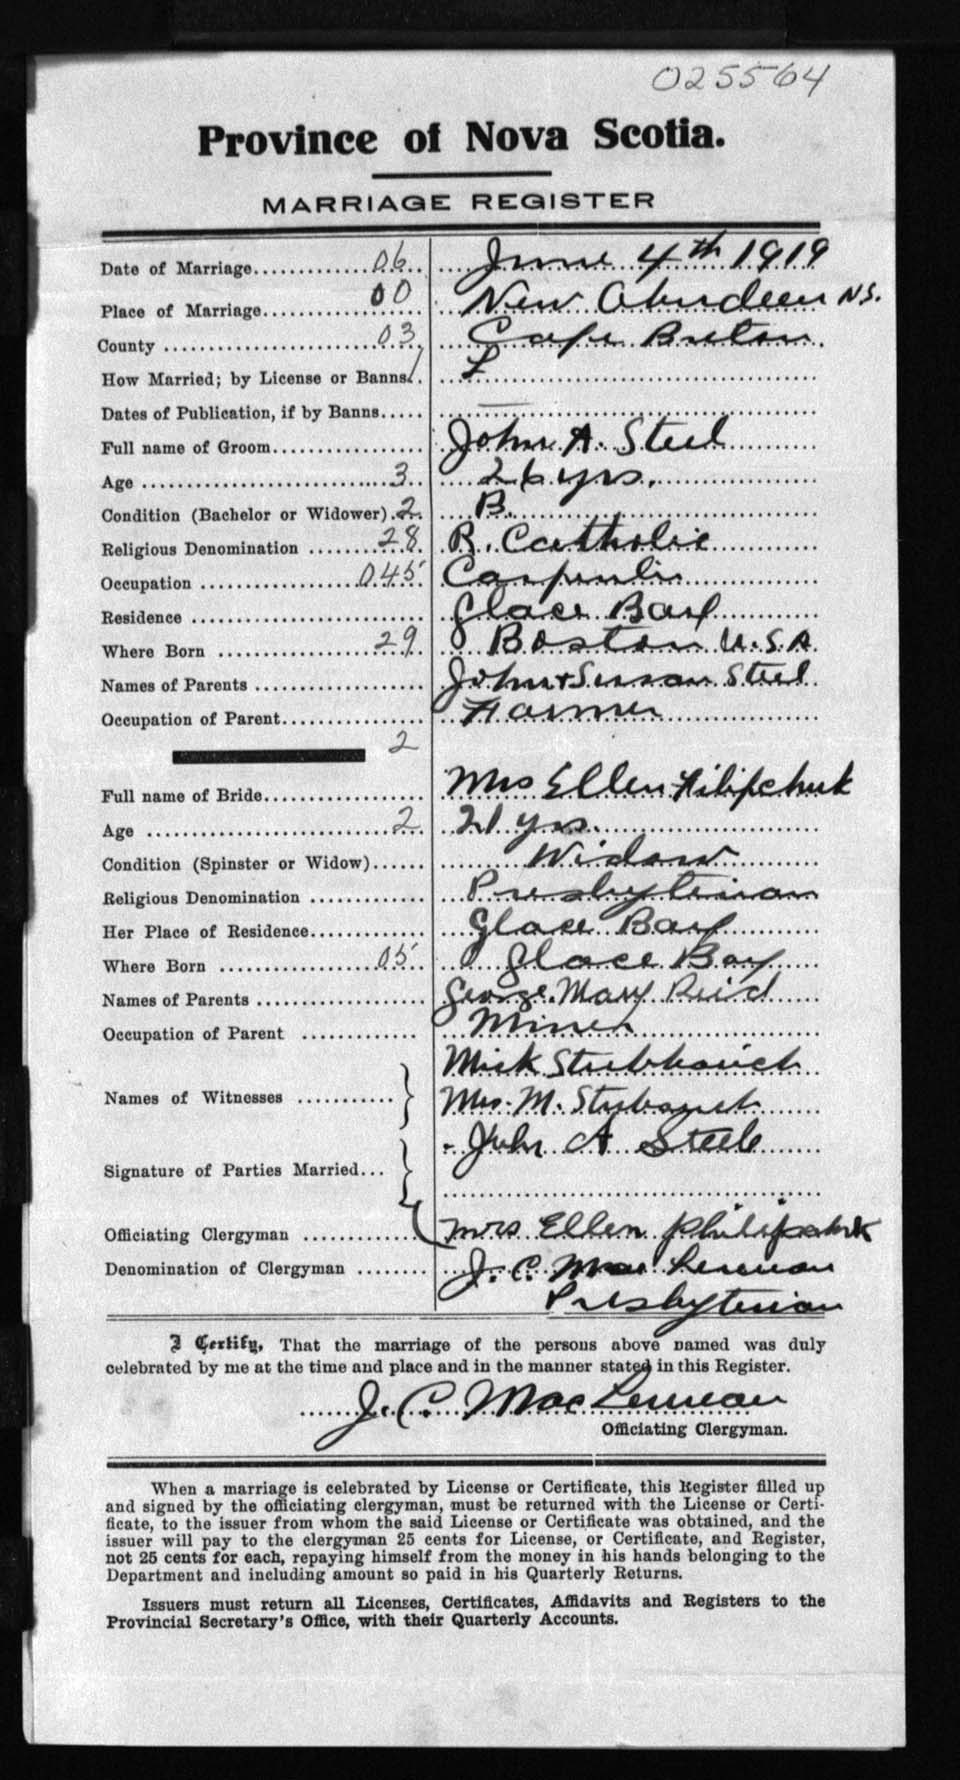 025564
Province of Nova Scotia.
MARRIAGE REGISTER
Date of Marriage.............06.. ....June 4th 1919
Place of Marriage............00 ..New Aberdeen N.S.
County .........................03.. ....Cape Breton.
How Married; by License or Banns/.. ...L
Dates of Publication, if by Banns..... —
Full name of Groom.................. John A. Steel
Age ...............................3.. ....26 yrs.
Condition (Bachelor or Widower).2. ....B.
Religious Denomination ........28. R. Catholic
Occupation ...................045. Carpenter
Residence ........................... Glace Bay
Where Born ....................29. Boston U.S.A
Names of Parents .................... John + Susan Steel
Occupation of Parent................. Farmer
2
Full name of Bride................... Mrs Ellen Filipchuk
Age ...............................2.. 21 yrs.
Condition (Spinster or Widow)...... Widow
Religious Denomination ............. Presbyterian
Her Place of Residence............. Glace Bay
Where Born ....................05.. Glace Bay
Names of Parents .................... George. Mary Reid
Occupation of Parent ............. Miner
Names of Witnesses ........... Mick
Mrs. M.
Signature of Parties Married... John A Steele
Officiating Clergyman ............. Mrs Ellen
Denomination of Clergyman ........ J. C. MacLennan
Presbyterian
I Certify, That the marriage of the persons above named was duly
celebrated by me at the time and place and in the manner stated in this Register.
......J. C. MacLennan
Officiating Clergyman.
When a marriage is celebrated by License or Certificate, this Register filled up
and signed by the officiating clergyman, must be returned with the License or Certi-
ficate, to the issuer from whom the said License or Certificate was obtained, and the
issuer will pay to the clergyman 25 cents for License, or Certificate, and Register,
not 25 cents for each, repaying himself from the money in his hands belonging to the
Department and including amount so paid in his Quarterly Returns.
Issuers must return all Licenses, Certificates, Affidavits and Registers to the
Provincial Secretary's Office, with their Quarterly Accounts.